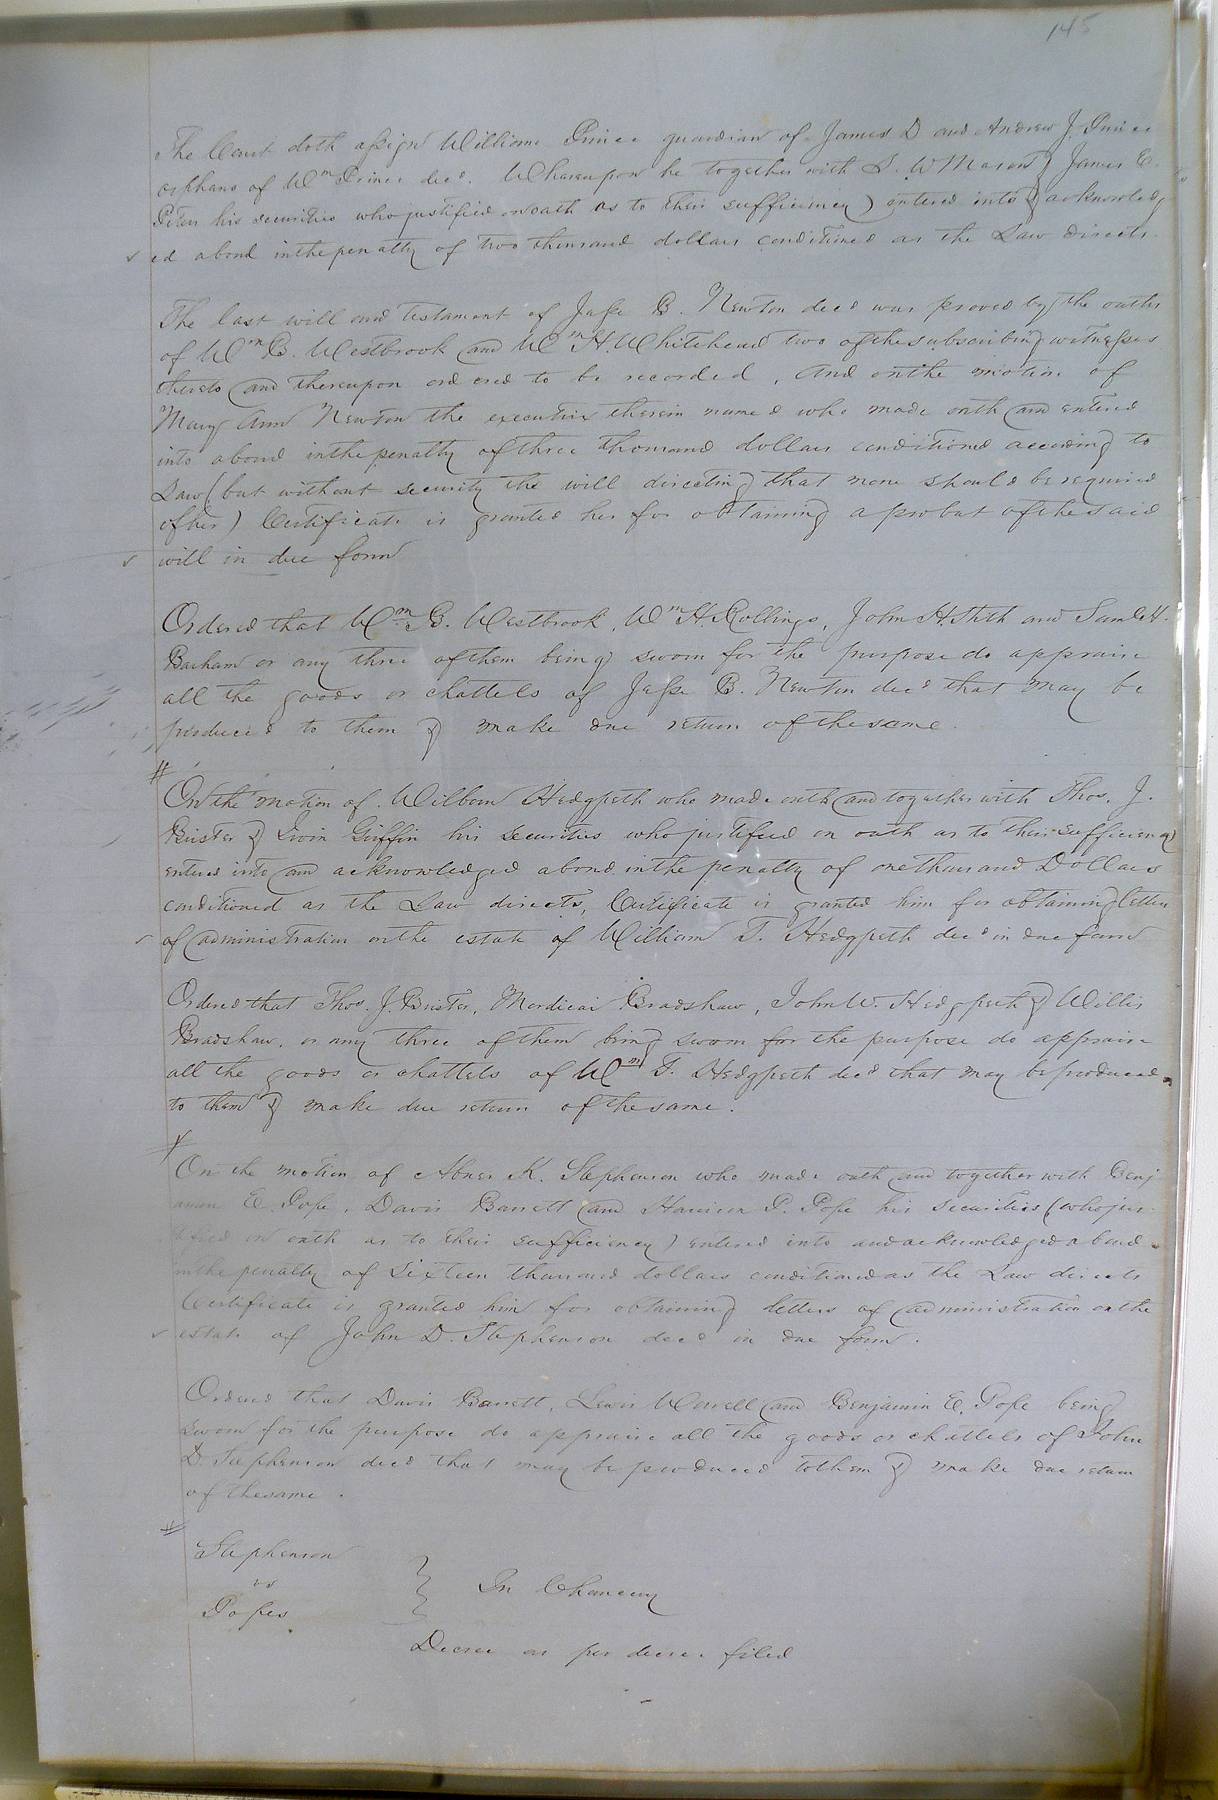 145
The Court doth assign William Prince guardian of James D and Andrew J. Prince
orphans of Wm Prince decd. Whereupon he together with S. W Mason & James E.
Peters his securities who justified onoath as to their sufficiency) entered into & acknowledg
ed abond inthepenalty of two thousand dollars conditioned as the Law directs.
The last will and testament of Jesse B. Newton decd was proved by the oaths
of Wm B. Westbrook and Wm H. Whitehead two ofthesubscribing witnesses
thereto and thereupon ordered to be recorded, And onthe motion of
Mary Ann Newton the executrix therein named who made oath and entered
into abond inthepenalty ofthree thousand dollars conditioned according to
Law (but without security the will directing that none should be required
ofher) Certificate is granted her for obtaining aprobat ofthesaid
will in due form
Ordered that Wm B. Westbrook, Wm H. Rollings, John H. and Saml H.
Barham or any three ofthem being sworn for the purpose do appraise
all the goods or chattels of Jesse B. Newton decd that may be
produced to them & make due return ofthesame.
On the motion of Wilborn Hedgpeth who made oath and together with Thos. J.
Brister & Griffin his securities who justified on oath as to their sufficiency
entered into and acknowledged abond inthe penalty of onethousand Dollars
conditioned as the Law directs, Certificate is granted him for obtaining letters
of administration onthe estate of William T. Hedgpeth decd in due form
Ordered that Thos. J. Brister, Mordicai Bradshaw, John W. Hedgpeth & Willis
Bradshaw, or any three of them being sworn for the purpose do appraise
all the goods or chattels of Wm T. Hedgpeth decd that may beproduced
to them & make due return of thesame.
On the motion of Abner K. Stephenson who made oath and together with Benj
amin E. Pope, Davis Barrett and Harrison P. Pope his securities (whojus
tified on oath as to their sufficiency) entered into andacknowledged abond
inthe penalty of Sixteen thousand dollars conditionedas the Law directs
Certificate is granted him for obtaining letters of administration onthe
estate of John D. Stephenson decd in due form.
Ordered that Davis Barrett, Lewis Worrell and Benjamin E. Pope being
sworn for the purpose do appraise all the goods or chattels of John
D. Stephenson decd that may beproduced tothem & make due return
of thesame.
Stephenson
vs
Popes
} In Chancery
Decree as per decree filed